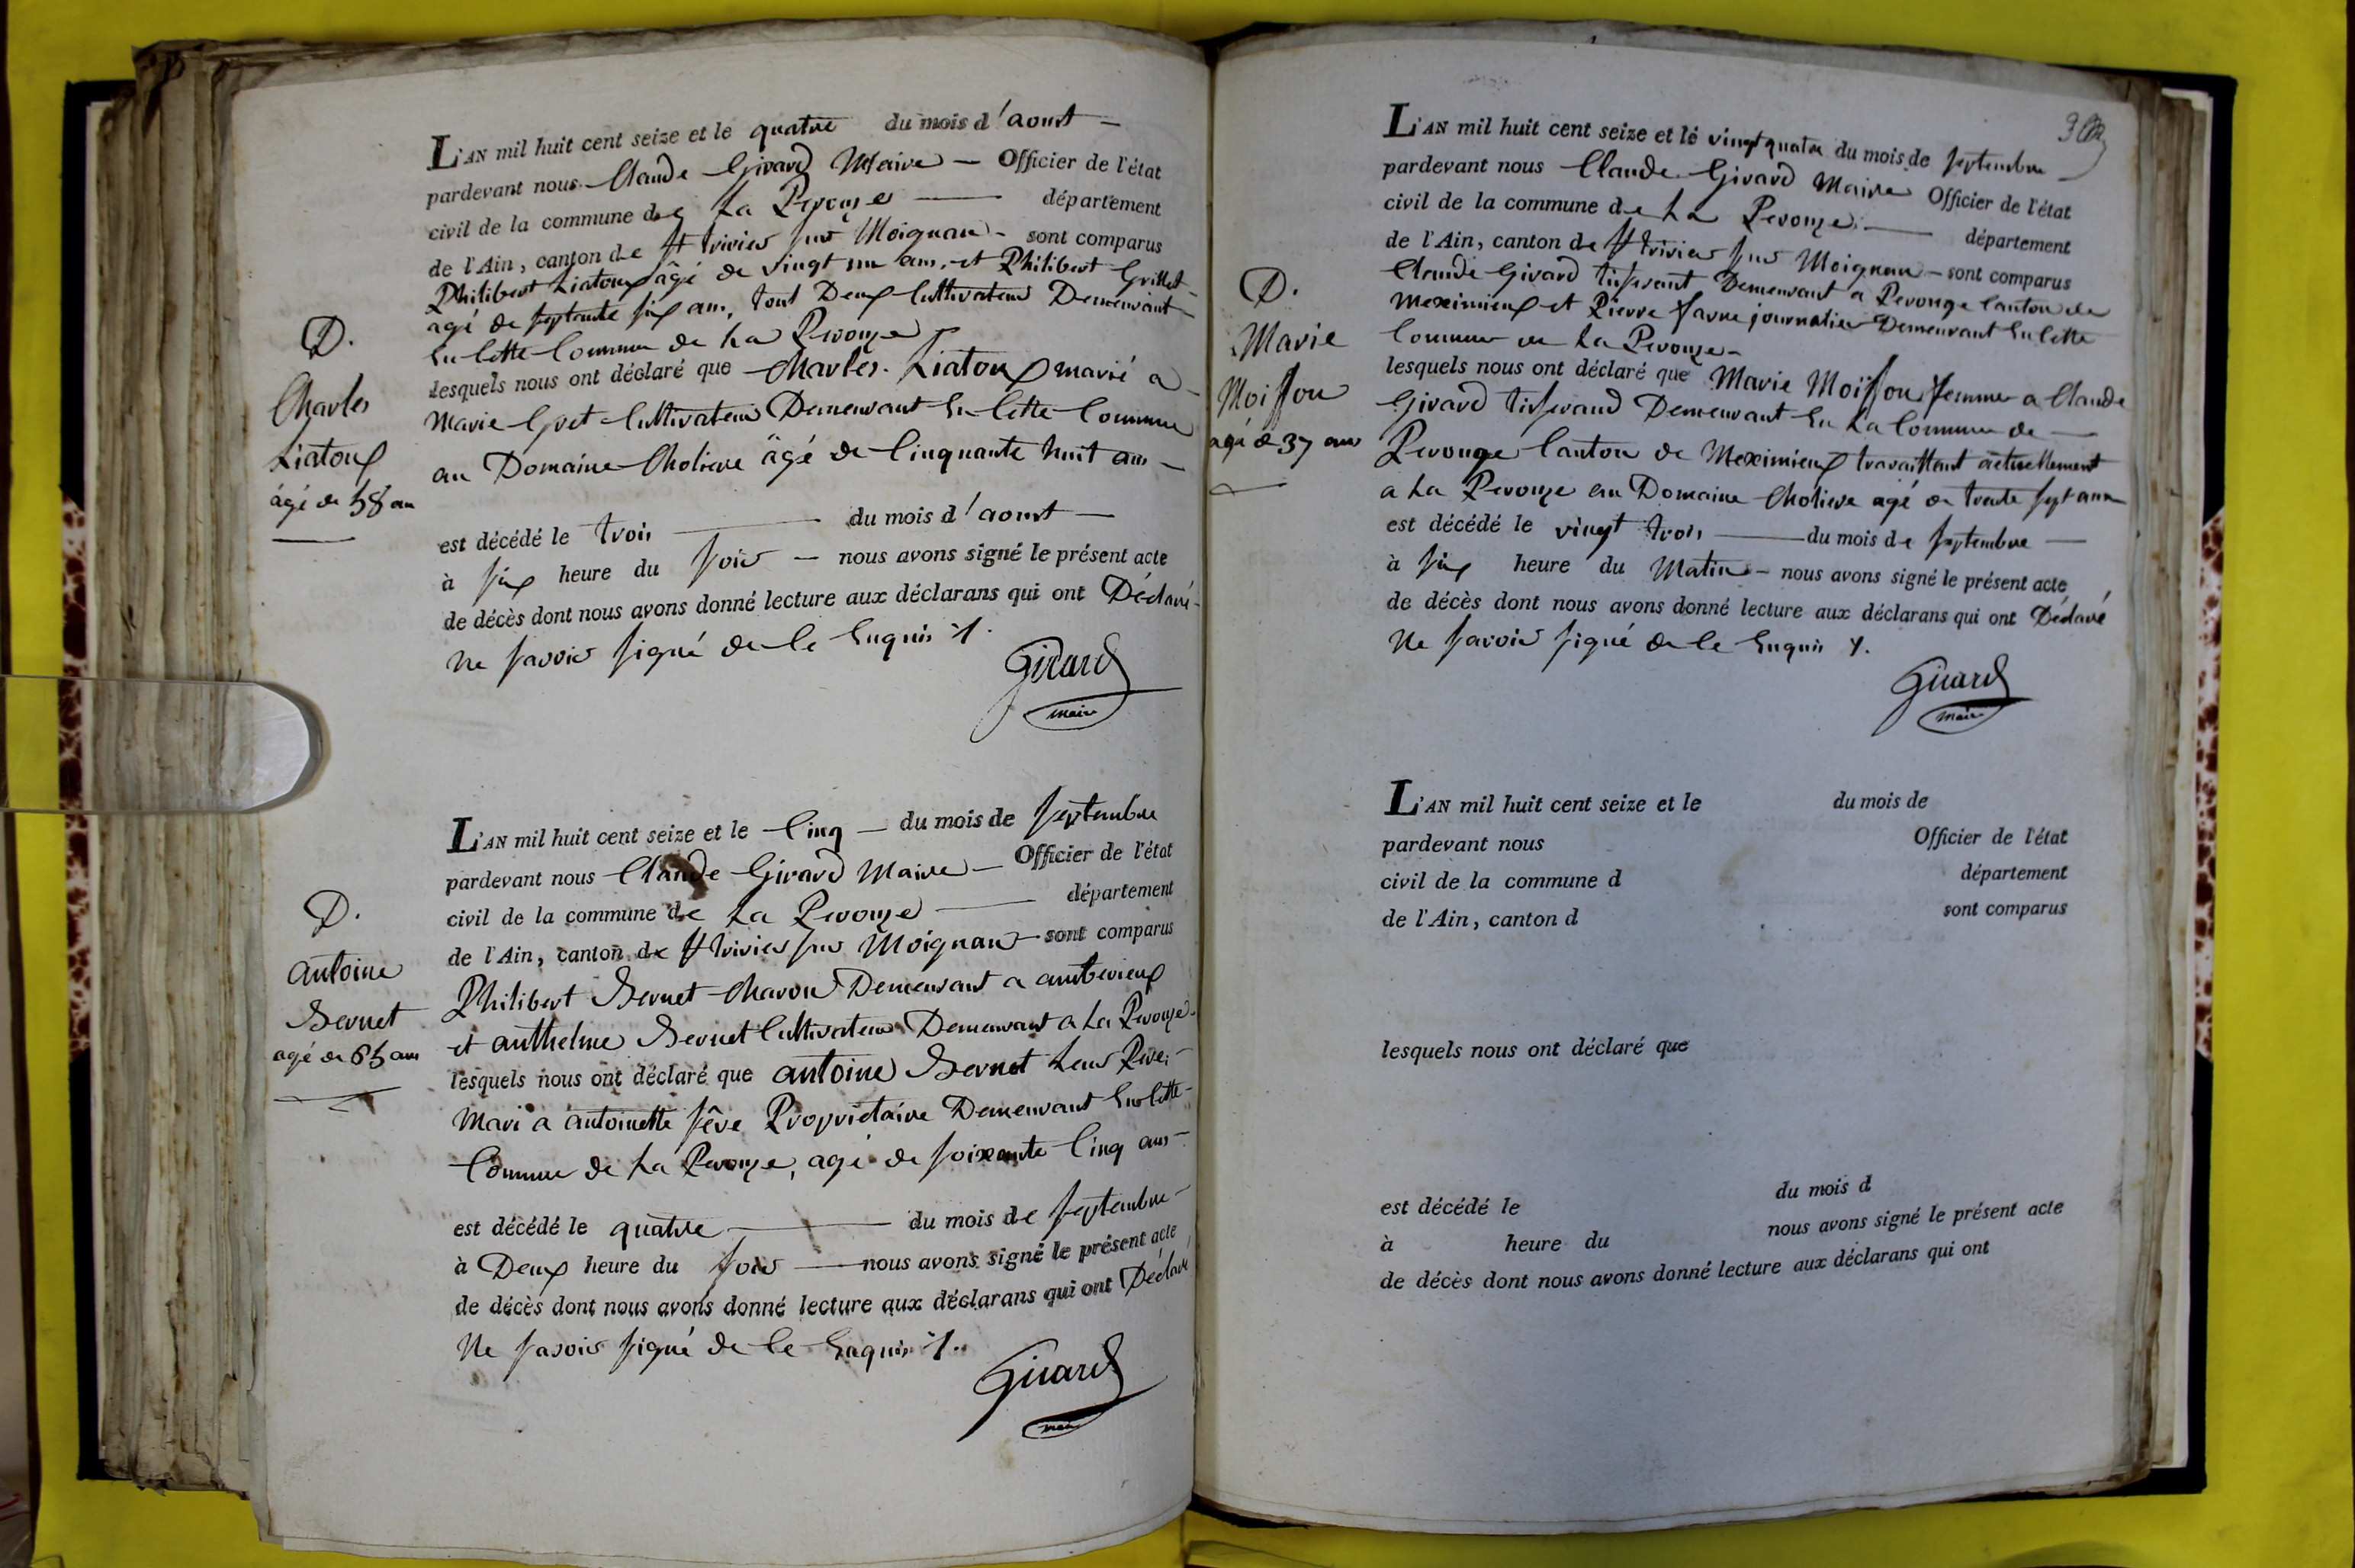 L'AN mil huit cent seize et le quatre du mois d'aoust
pardevant nous Claude Girard Maire Officier de l'état
civil de la commune de La Perouze département
de l'Ain, canton de St trivier sur Moignan sont comparus
Philibert Liatoux âgé de vingt un ans, et Philibert Grillet
agé de septante six ans, tout Deux Cultivateur Demeurant
En Cette Commune de La Perouze
lesquels nous ont déclaré que Charles Liatoux marié a
Marie Cultivateur Demeurant En Cette Commune
au Domaine Choliere âgé de Cinquante huit ans
est décédé le trois du mois d'aoust
à six heure du soir nous avons signé le présent acte
de décès dont nous avons donné lecture aux déclarans qui ont Déclaré
Ne savoir signé de Ce Enquis
Girard
maire
D.
Charles
Liatoux
âgé de 58 an
L'AN mil huit cent seize et le Cinq du mois de septembre
pardevant nous Claude Girard Maire Officier de l'état
civil de la commune de La Perouze département
de l'Ain, canton de St trivier sur Moignan sont comparus
Philibert Bernet Charon Demeurant a ambérieux
et anthelme Bernet Cultivateur Demeurant a La Perouze
lesquels nous ont déclaré que antoine Bernet Leur Pere
Mari a antoinette sêve Proprietaire Demeurant En Cette
Commune de La Perouze, agé de soixante Cinq ans
est décédé le quatre du mois de septembre
à Deux heure du soir nous avons signé le présent acte
de décès dont nous avons donné lecture aux déclarans qui ont Déclaré
Ne savoir signé de Ce Enquis
Girard
maire
D.
antoine
Bernet
agé de 65 ans
L'AN mil huit cent seize et le vingt quatre du mois de septembre
pardevant nous Claude Girard Maire Officier de l'état
civil de la commune de La Perouze département
de l'Ain, canton de St trivier sur Moignan sont comparus
Claude Girard tisserant Demeurant a Perouge Canton de
Meximieux et Pierre favre journalier Demeurant En Cette
Commune de La Perouze
lesquels nous ont déclaré que Marie Moisson femme a Claude
Girard tisserand Demeurant En La Commune de
Perouge Canton de Meximieux travaillant actuellement
a La Perouze au Domaine Choliere agé de trente sept ans
est décédé le vingt trois du mois de septembre
à six heure du Matin nous avons signé le présent acte
de décès dont nous avons donné lecture aux déclarans qui ont Déclaré
Ne savoir signé de Ce Enquis
Girard
maire
D.
Marie
Moisson
agé de 37 ans
L'AN mil huit cent seize et le du mois de
pardevant nous Officier de l'état
civil de la commune d département
de l'Ain, canton d sont comparus
lesquels nous ont déclaré que
est décédé le du mois d
à heure du nous avons signé le présent acte
de décès dont nous avons donné lecture aux déclarans qui ont